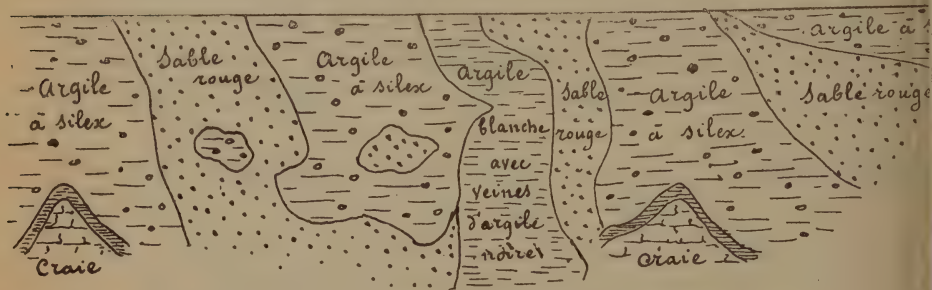 Argile
à silex
Sable
rouge
Argile
à silex
Argile
blanche
avec
veines
d'argile
noire
Sable
rouge
Argile
à silex
argile à
Sable rouge
Craie
Craie